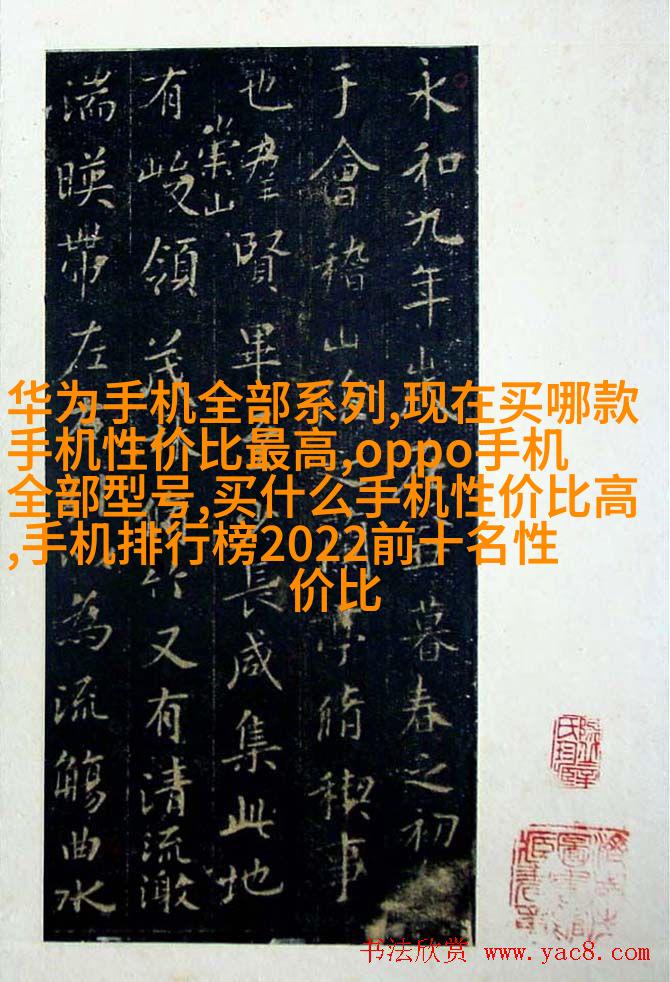 永和九年在暮春之初
于會稽山亭脩稧事
也羣賢畢長咸集此地
有崇山峻領茂又有清流激
湍暎帶左為流觴曲水
华为手机全部系列,现在买哪款
手机性价比最高,oppo手机
全部型号,买什么手机性价比高
,手机排行榜2022前十名性
价比
书法欣赏 www.yac8.com